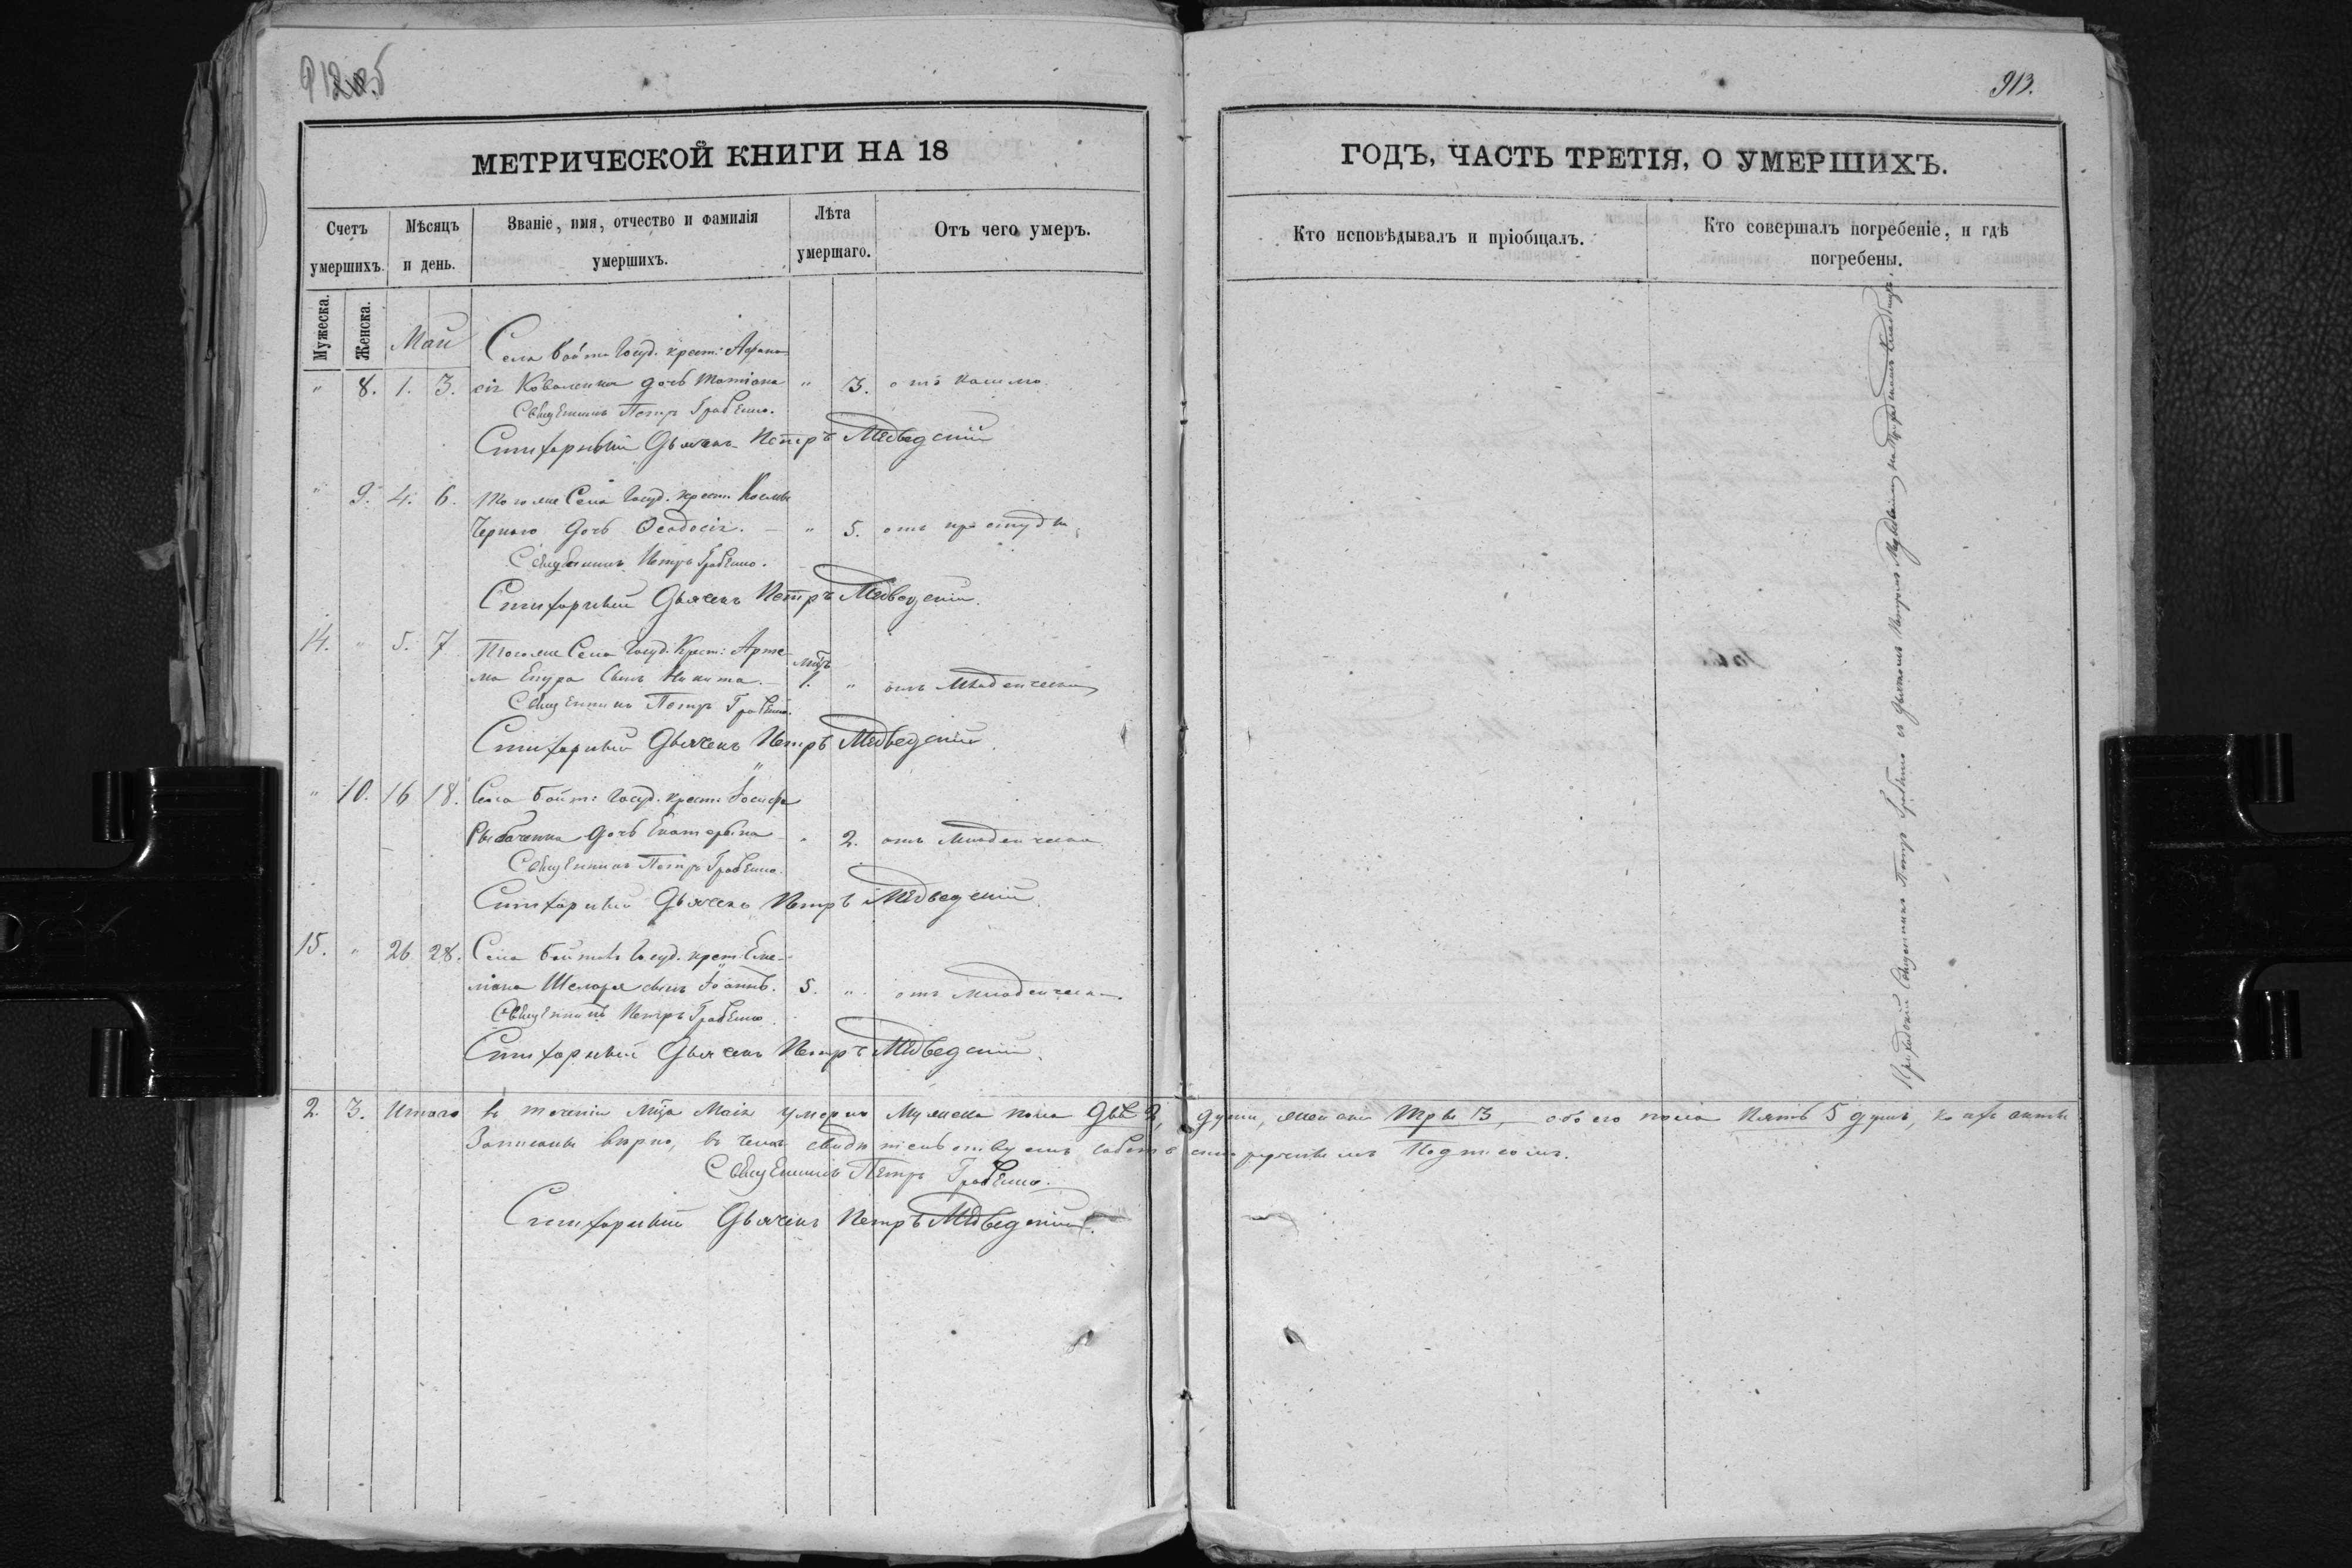 912об
МЕТРИЧЕСКОЙ КНИГИ НА 18
Счетъ умершихъ.
Мѣсяцъ и день.
Званіе, имя, отчество и фамилія умершихъ.
Лѣта умершаго.
Отъ чего умеръ.
Мужеска.
Женска.
Май
Села Госуд. крест: Афана-
" 8. 1. 3. сія Коваленка дочь Татіана " 3. отъ кашлю
Священникъ Петръ Грабенко.
Стихарный Дьячекъ Петръ Медведскій
" 9. 4. 6. Тогоже Села Госуд. крест. Космы
Чернаго дочь Феодосія. — " 5. отъ простуды
Священникъ Петръ Грабенко.
Стихарный Дьячекъ Петръ Медведскій.
14. " 5. 7 Тогоже Села Госуд. Крест: Арте-
ма сынъ Никита. — 1. " отъ младенческ
Священникъ Петръ Грабенко.
Стихарный Дьячекъ Петръ Медведскій.
" 10. 16 18. Села Госуд. крест: Іосифа
дочь Екатерина " 2. отъ младенческа
Священникъ Петръ Грабенко.
Стихарный Дьячекъ Петръ Медведскій.
15. " 26 28. Села Госуд. крест: Еме-
ліана сынъ Іоаннъ. 5. " отъ младенческа
Священникъ Петръ Грабенко
Стихарный Дьячекъ Петръ Медведскій.
2. 3. Итого въ теченіи Мца Маія умерло Мужеска пола Двѣ 2, души, женска Три 3, обоего пола Пять 5 душъ,
Записаны вѣрно, въ чемъ свидѣтельствуемъ подписомъ.
Священникъ Петръ Грабенко.
Стихарный Дьячекъ Петръ Медведскій.
913.
ГОДЪ, ЧАСТЬ ТРЕТІЯ, О УМЕРШИХЪ.
Кто исповѣдывалъ и пріобщалъ.
Кто совершалъ погребеніе, и гдѣ погребены.
Приходскій Священникъ Петръ Грабенко съ дьячкомъ Петромъ Медведскимъ на Приходскомъ Кладбищѣ.